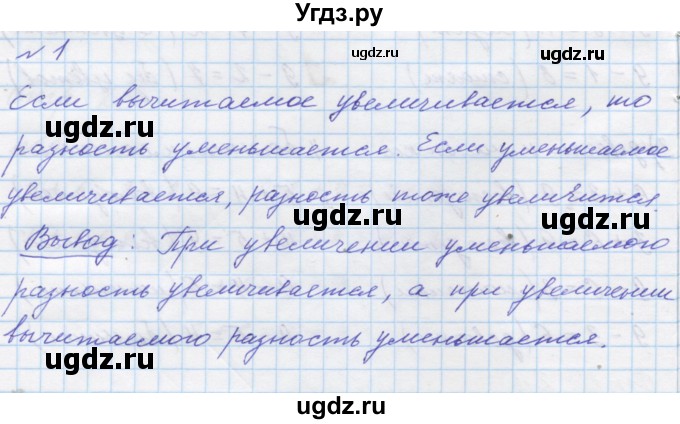 Угдз.ру
№ 1
Если вычитаемое увеличивается, то
разность уменьшается. Если уменьшаемое
увеличивается, разность тоже увеличится
Вывод: При увеличении уменьшаемого
разность увеличивается, а при увеличении
вычитаемого разность уменьшается.
ugdz.ru
ugdz.ru
ugdz.ru
ugdz.ru
ugdz.ru
ugdz.ru
ugdz.ru
ugdz.ru
ugdz.ru